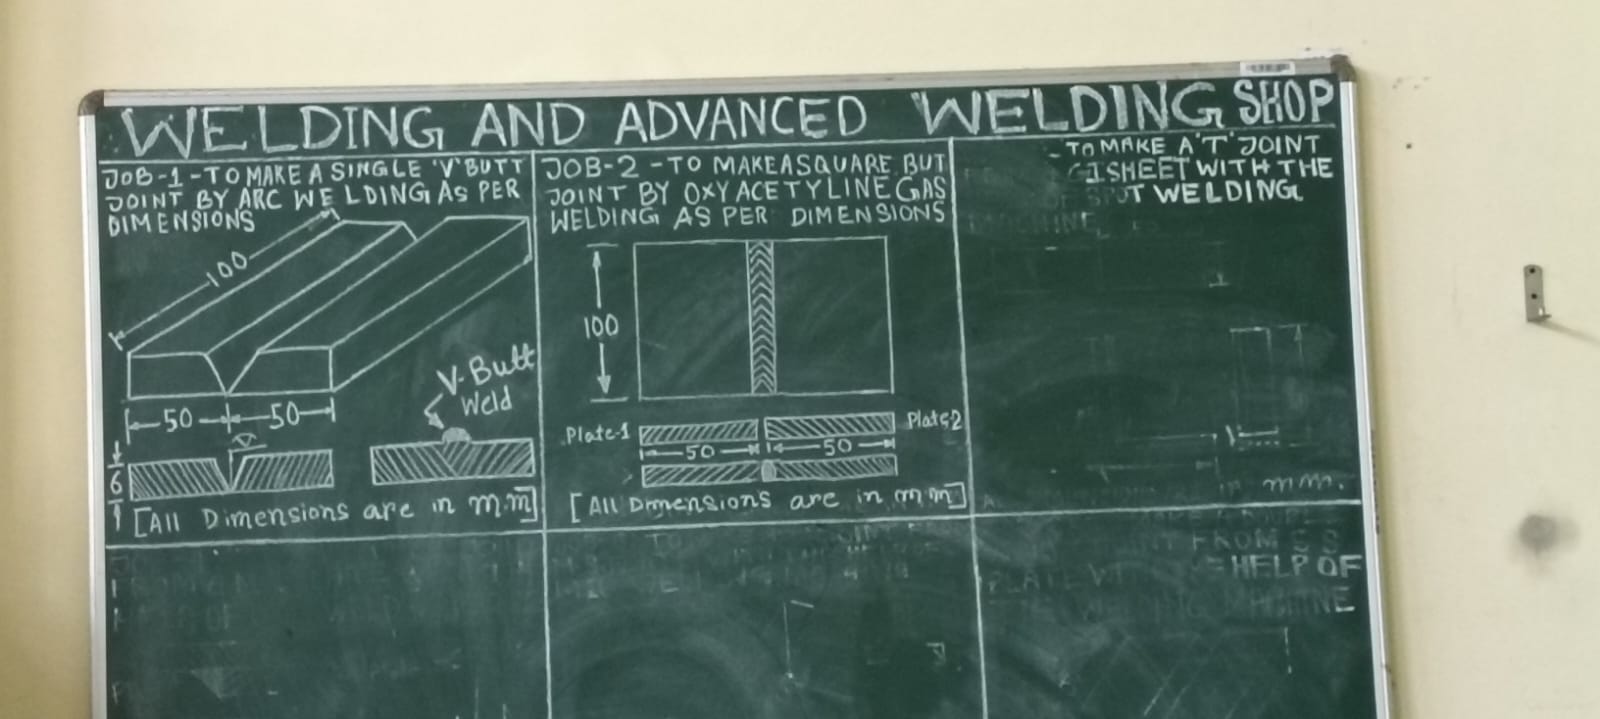 WELDING AND ADVANCED WELDING SHOP
JOB-1-TO MAKE A SINGLE 'V' BUTT
JOINT BY ARC WELDING AS PER
DIMENSIONS
100
50 50
V-Butt
Weld
6
[All Dimensions are in m.m]
JOB-2-TO MAKE A SQUARE BUT
JOINT BY OXY ACETYLINE GAS
WELDING AS PER DIMENSIONS
100
Plate-1
Plate-2
50 50
[All Dimensions are in m m]
-TO MAKE A 'T' JOINT
GI SHEET WITH THE
SPOT WELDING
in mm.
FROM
HELP OF